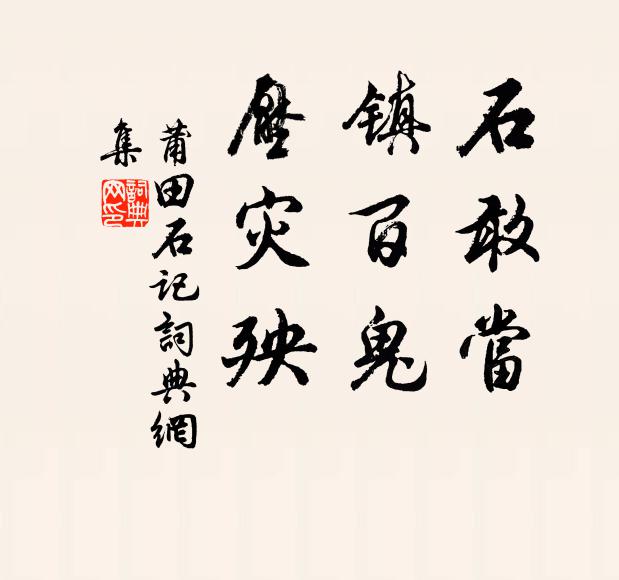 石敢當
镇百鬼
壓灾殃
莆田石记詞典網
集
詞典
网印